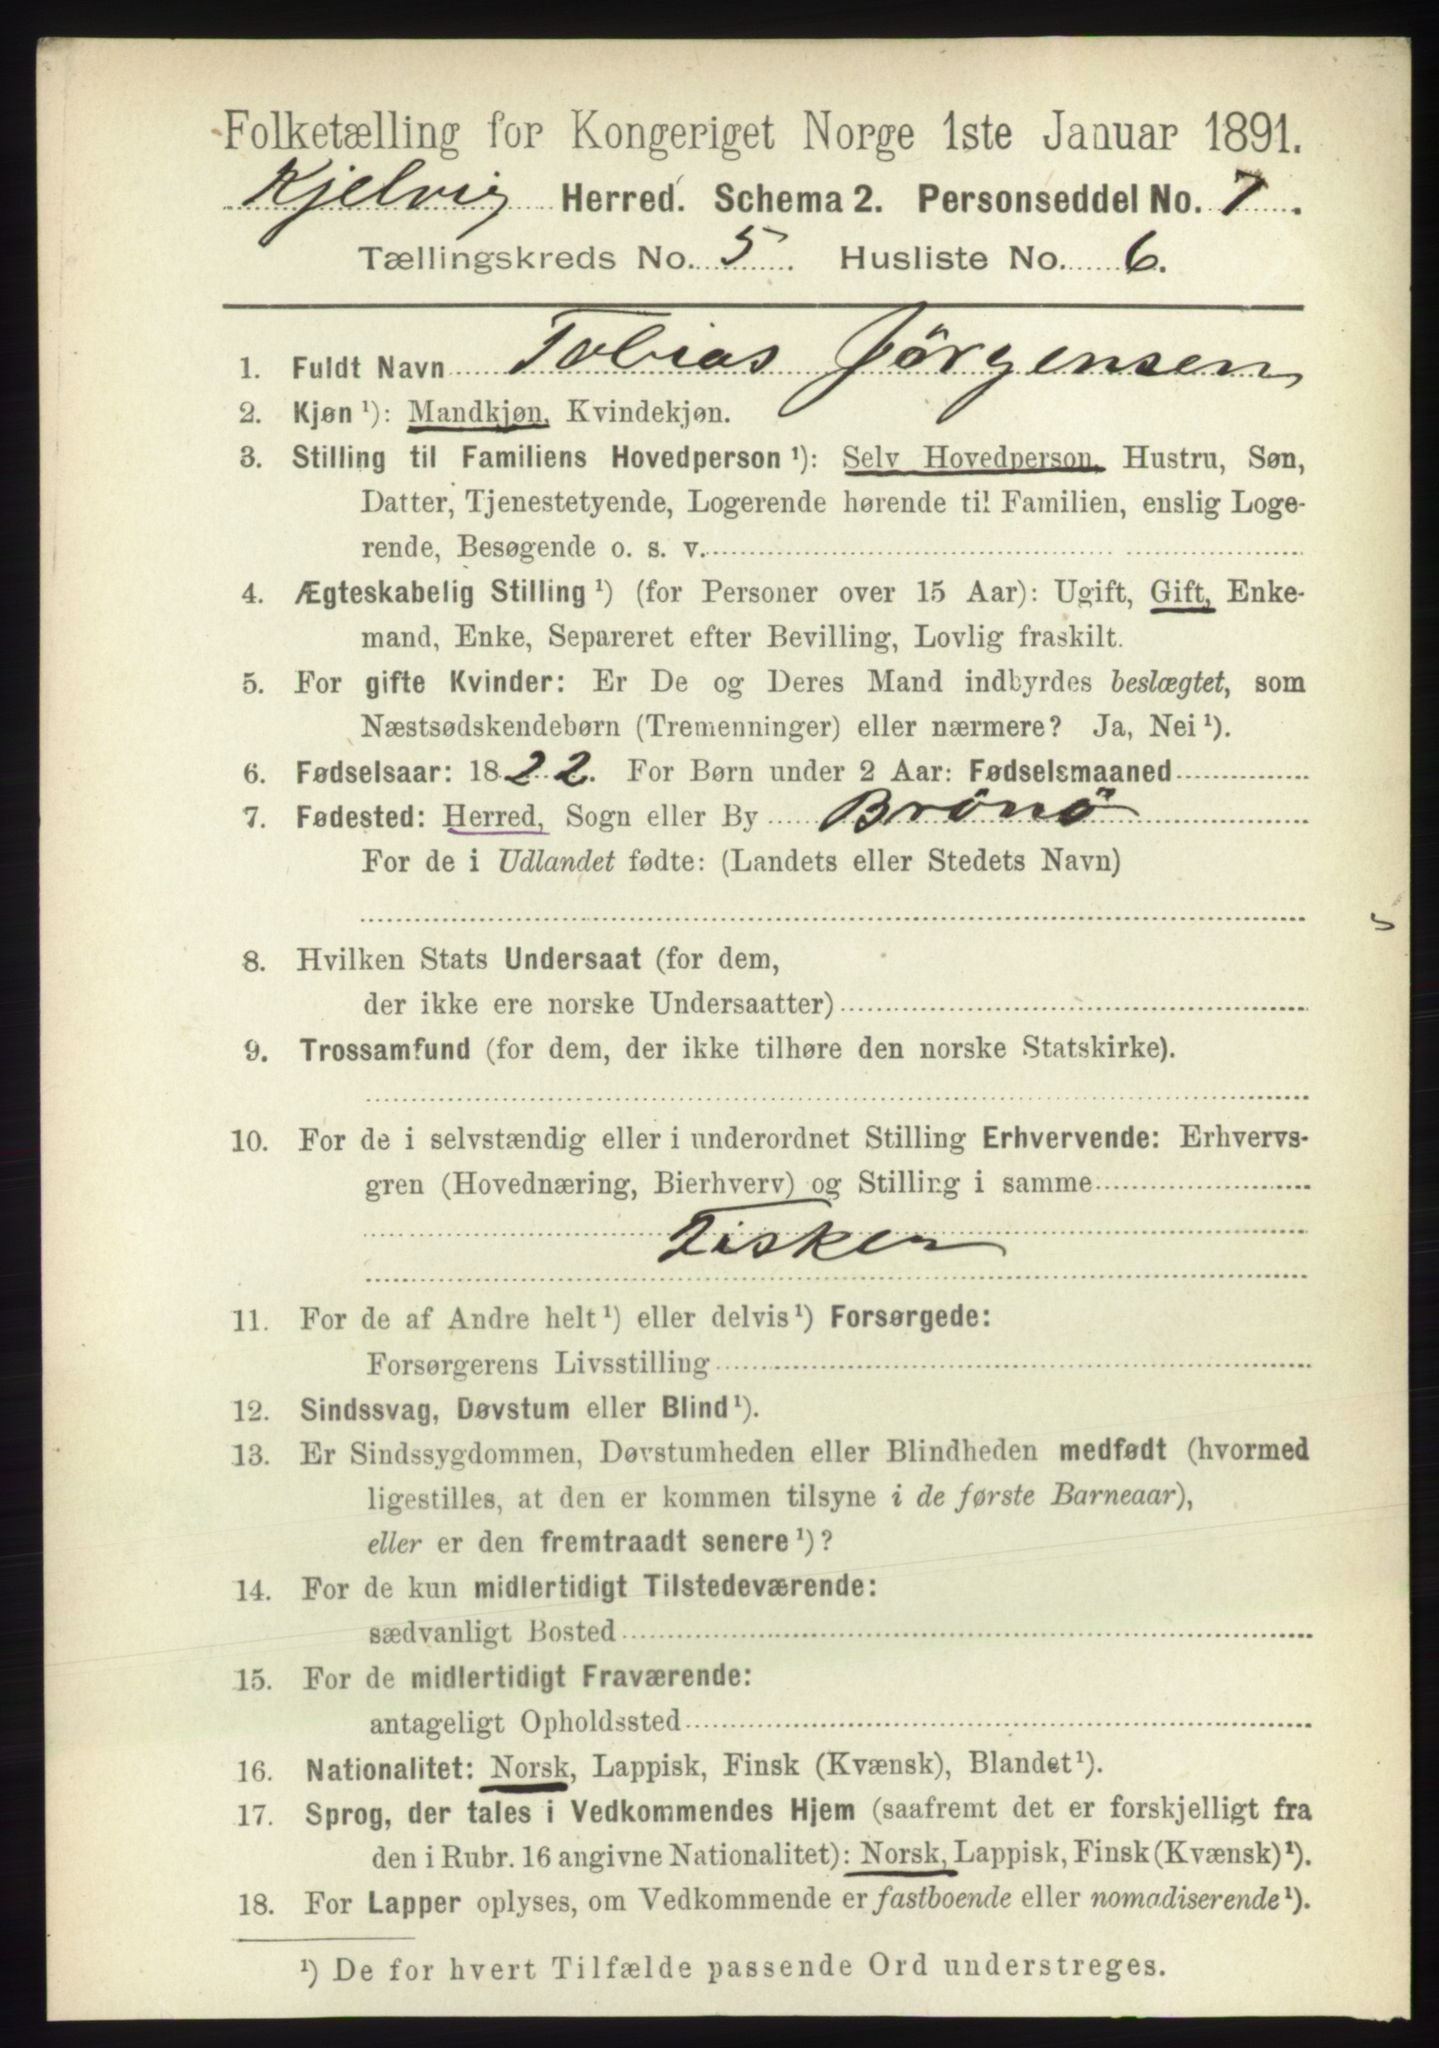 Folketælling for Kongeriget Norge 1ste Januar 1891.
Kjelvig Herred. Schema 2. Personseddel No. 7.
Tællingskreds No. 5. Husliste No. 6.
1. Fuldt Navn Tobias Jörgensen
2. Kjøn ¹): Mandkjøn, Kvindekjøn.
3. Stilling til Familiens Hovedperson ¹): Selv Hovedperson, Hustru, Søn,
Datter, Tjenestetyende, Logerende hørende til Familien, enslig Loge-
rende, Besøgende o. s. v.
4. Ægteskabelig Stilling ¹) (for Personer over 15 Aar): Ugift, Gift, Enke-
mand, Enke, Separeret efter Bevilling, Lovlig fraskilt.
5. For gifte Kvinder: Er De og Deres Mand indbyrdes beslægtet, som
Næstsødskendebørn (Tremenninger) eller nærmere? Ja, Nei ¹).
6. Fødselsaar: 1822. For Børn under 2 Aar: Fødselsmaaned
7. Fødested: Herred, Sogn eller By Brönö
For de i Udlandet fødte: (Landets eller Stedets Navn)
8. Hvilken Stats Undersaat (for dem,
der ikke ere norske Undersaatter)
9. Trossamfund (for dem, der ikke tilhøre den norske Statskirke).
10. For de i selvstændig eller i underordnet Stilling Erhvervende: Erhvervs-
gren (Hovednæring, Bierhverv) og Stilling i samme
Fisker
11. For de af Andre helt ¹) eller delvis ¹) Forsørgede:
Forsørgerens Livsstilling
12. Sindssvag, Døvstum eller Blind ¹).
13. Er Sindssygdommen, Døvstumheden eller Blindheden medfødt (hvormed
ligestilles, at den er kommen tilsyne i de første Barneaar),
eller er den fremtraadt senere ¹)?
14. For de kun midlertidigt Tilstedeværende:
sædvanligt Bosted
15. For de midlertidigt Fraværende:
antageligt Opholdssted
16. Nationalitet: Norsk, Lappisk, Finsk (Kvænsk), Blandet ¹).
17. Sprog, der tales i Vedkommendes Hjem (saafremt det er forskjelligt fra
den i Rubr. 16 angivne Nationalitet): Norsk, Lappisk, Finsk (Kvænsk) ¹).
18. For Lapper oplyses, om Vedkommende er fastboende eller nomadiserende ¹).
¹) De for hvert Tilfælde passende Ord understreges.